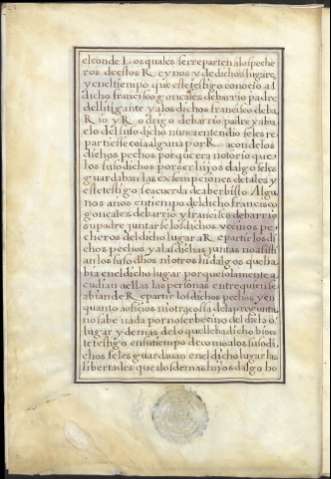 esconde Los quales se reparten a los peche
ros destos Reynos y de dichos lugares
y en el tiempo que este testigo conoçio al
dicho françisco gonçales de barrio padre
del litigante y a los dichos françisco de ba
Rio y Rodrigo de barrio padre y abu
elo del suso dicho nunca entendio se les re
partiesse cosa alguna por Raçon de los
dichos pechos por que era notorio que
los suso dichos por ser hijos dalgo se les
guardaban las exsempçiones de tales y
este testigo se acuerda de aber bisto Algu
nos años en tiempo del dicho françisco
gonçales de barrio y françisco de barrio
su padre juntarse los dichos veçinos pe
cheros del dicho lugar a Repartir los di
chos pechos y a las dichas juntas no assisti
an los suso dhos ni otros hidalgos que ha
bia en el dicho lugar por que solamente a
cudian a ellas las personas entre quien se
abian de Repartir los dichos pechos y en
quanto a ofiçios ni otra cossa de la pregunta
no sabe nada por no ser beçino del dicho
lugar y demas de lo que lleba dicho bio es
te testigo en su tiempo de como a los suso di
chos se les guardavan en el dicho lugar las
libertades que a los demas hijos dalgo bo